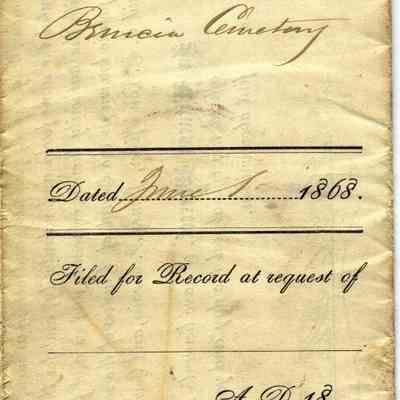 Benicia Cemetery
Dated June 1 1868.
Filed for Record at request of
A. D. 18